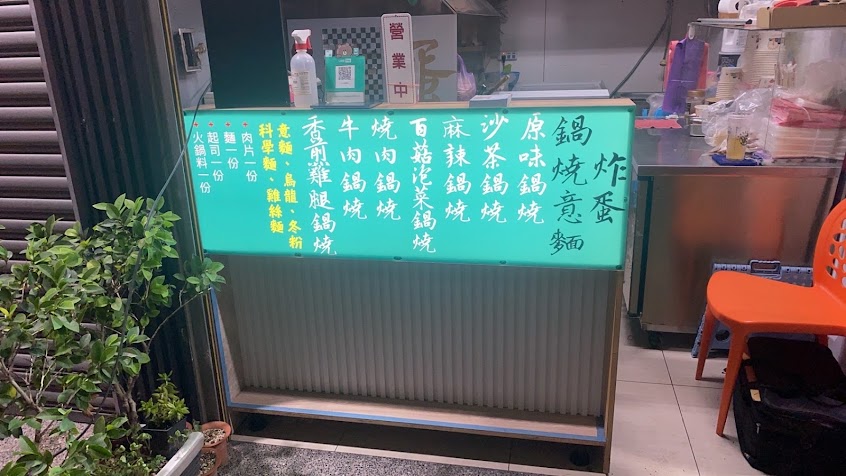 營業中
炸蛋
鍋燒意麵
原味鍋燒
沙茶鍋燒
麻辣鍋燒
百菇泡菜鍋燒
燒肉鍋燒
牛肉鍋燒
香煎雞腿鍋燒
意麵、烏龍、冬粉
科學麵、雞絲麵
肉片一份
麵一份
起司一份
火鍋料一份